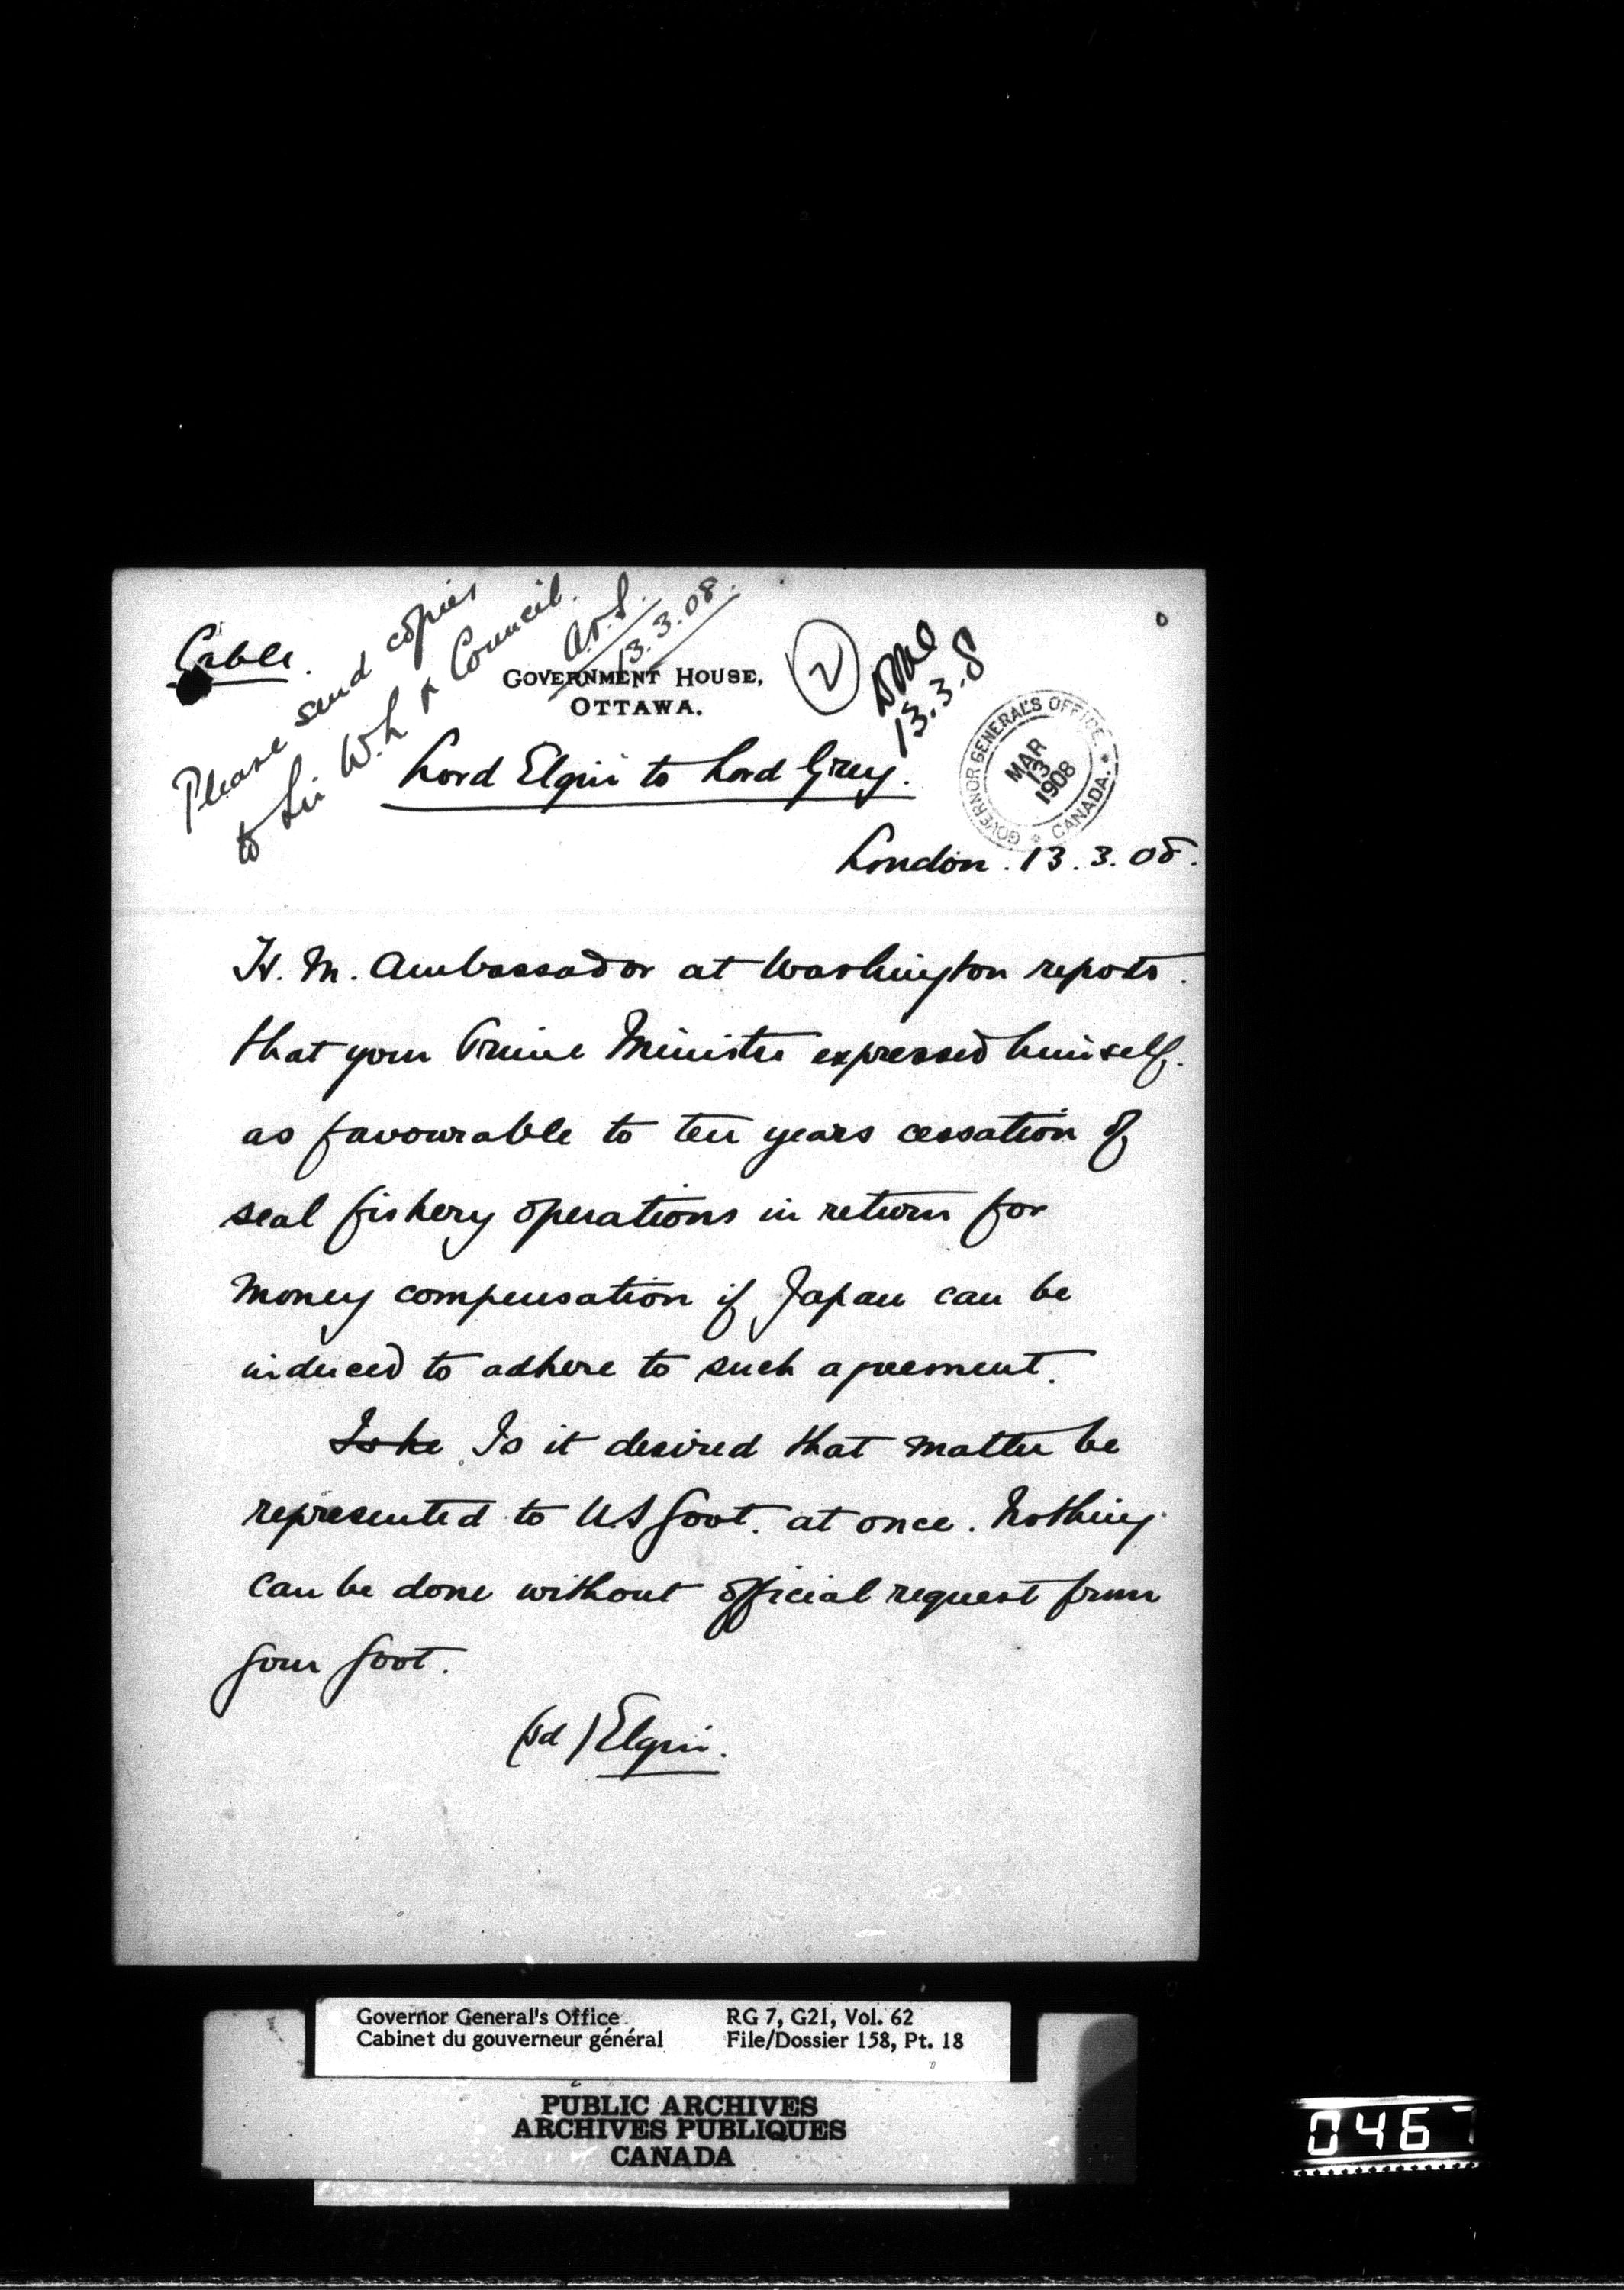 Cable.
Please send copies
to Sir W.L & Council.
13.3.08.
GOVERNMENT HOUSE,
OTTAWA.
2
Done
13.3.8
GOVERNOR GENERAL'S OFFICE. * CANADA. *
MAR
13
1908
Lord Elgin to Lord Grey.
London. 13.3.08.
H. M. Ambassador at Washington reports
that your Prime Minister expressed himself
as favourable to ten years cessation of
seal fishery operations in return for
money compensation if Japan can be
induced to adhere to such agreement.
Is he Is it desired that matter be
represented to U.S Govt. at once. Nothing
can be done without official request from
your Govt.
(sd) Elgin.
Governor General's Office RG 7, G21, Vol. 62
Cabinet du gouverneur général File/Dossier 158, Pt. 18
PUBLIC ARCHIVES
ARCHIVES PUBLIQUES
CANADA
0467